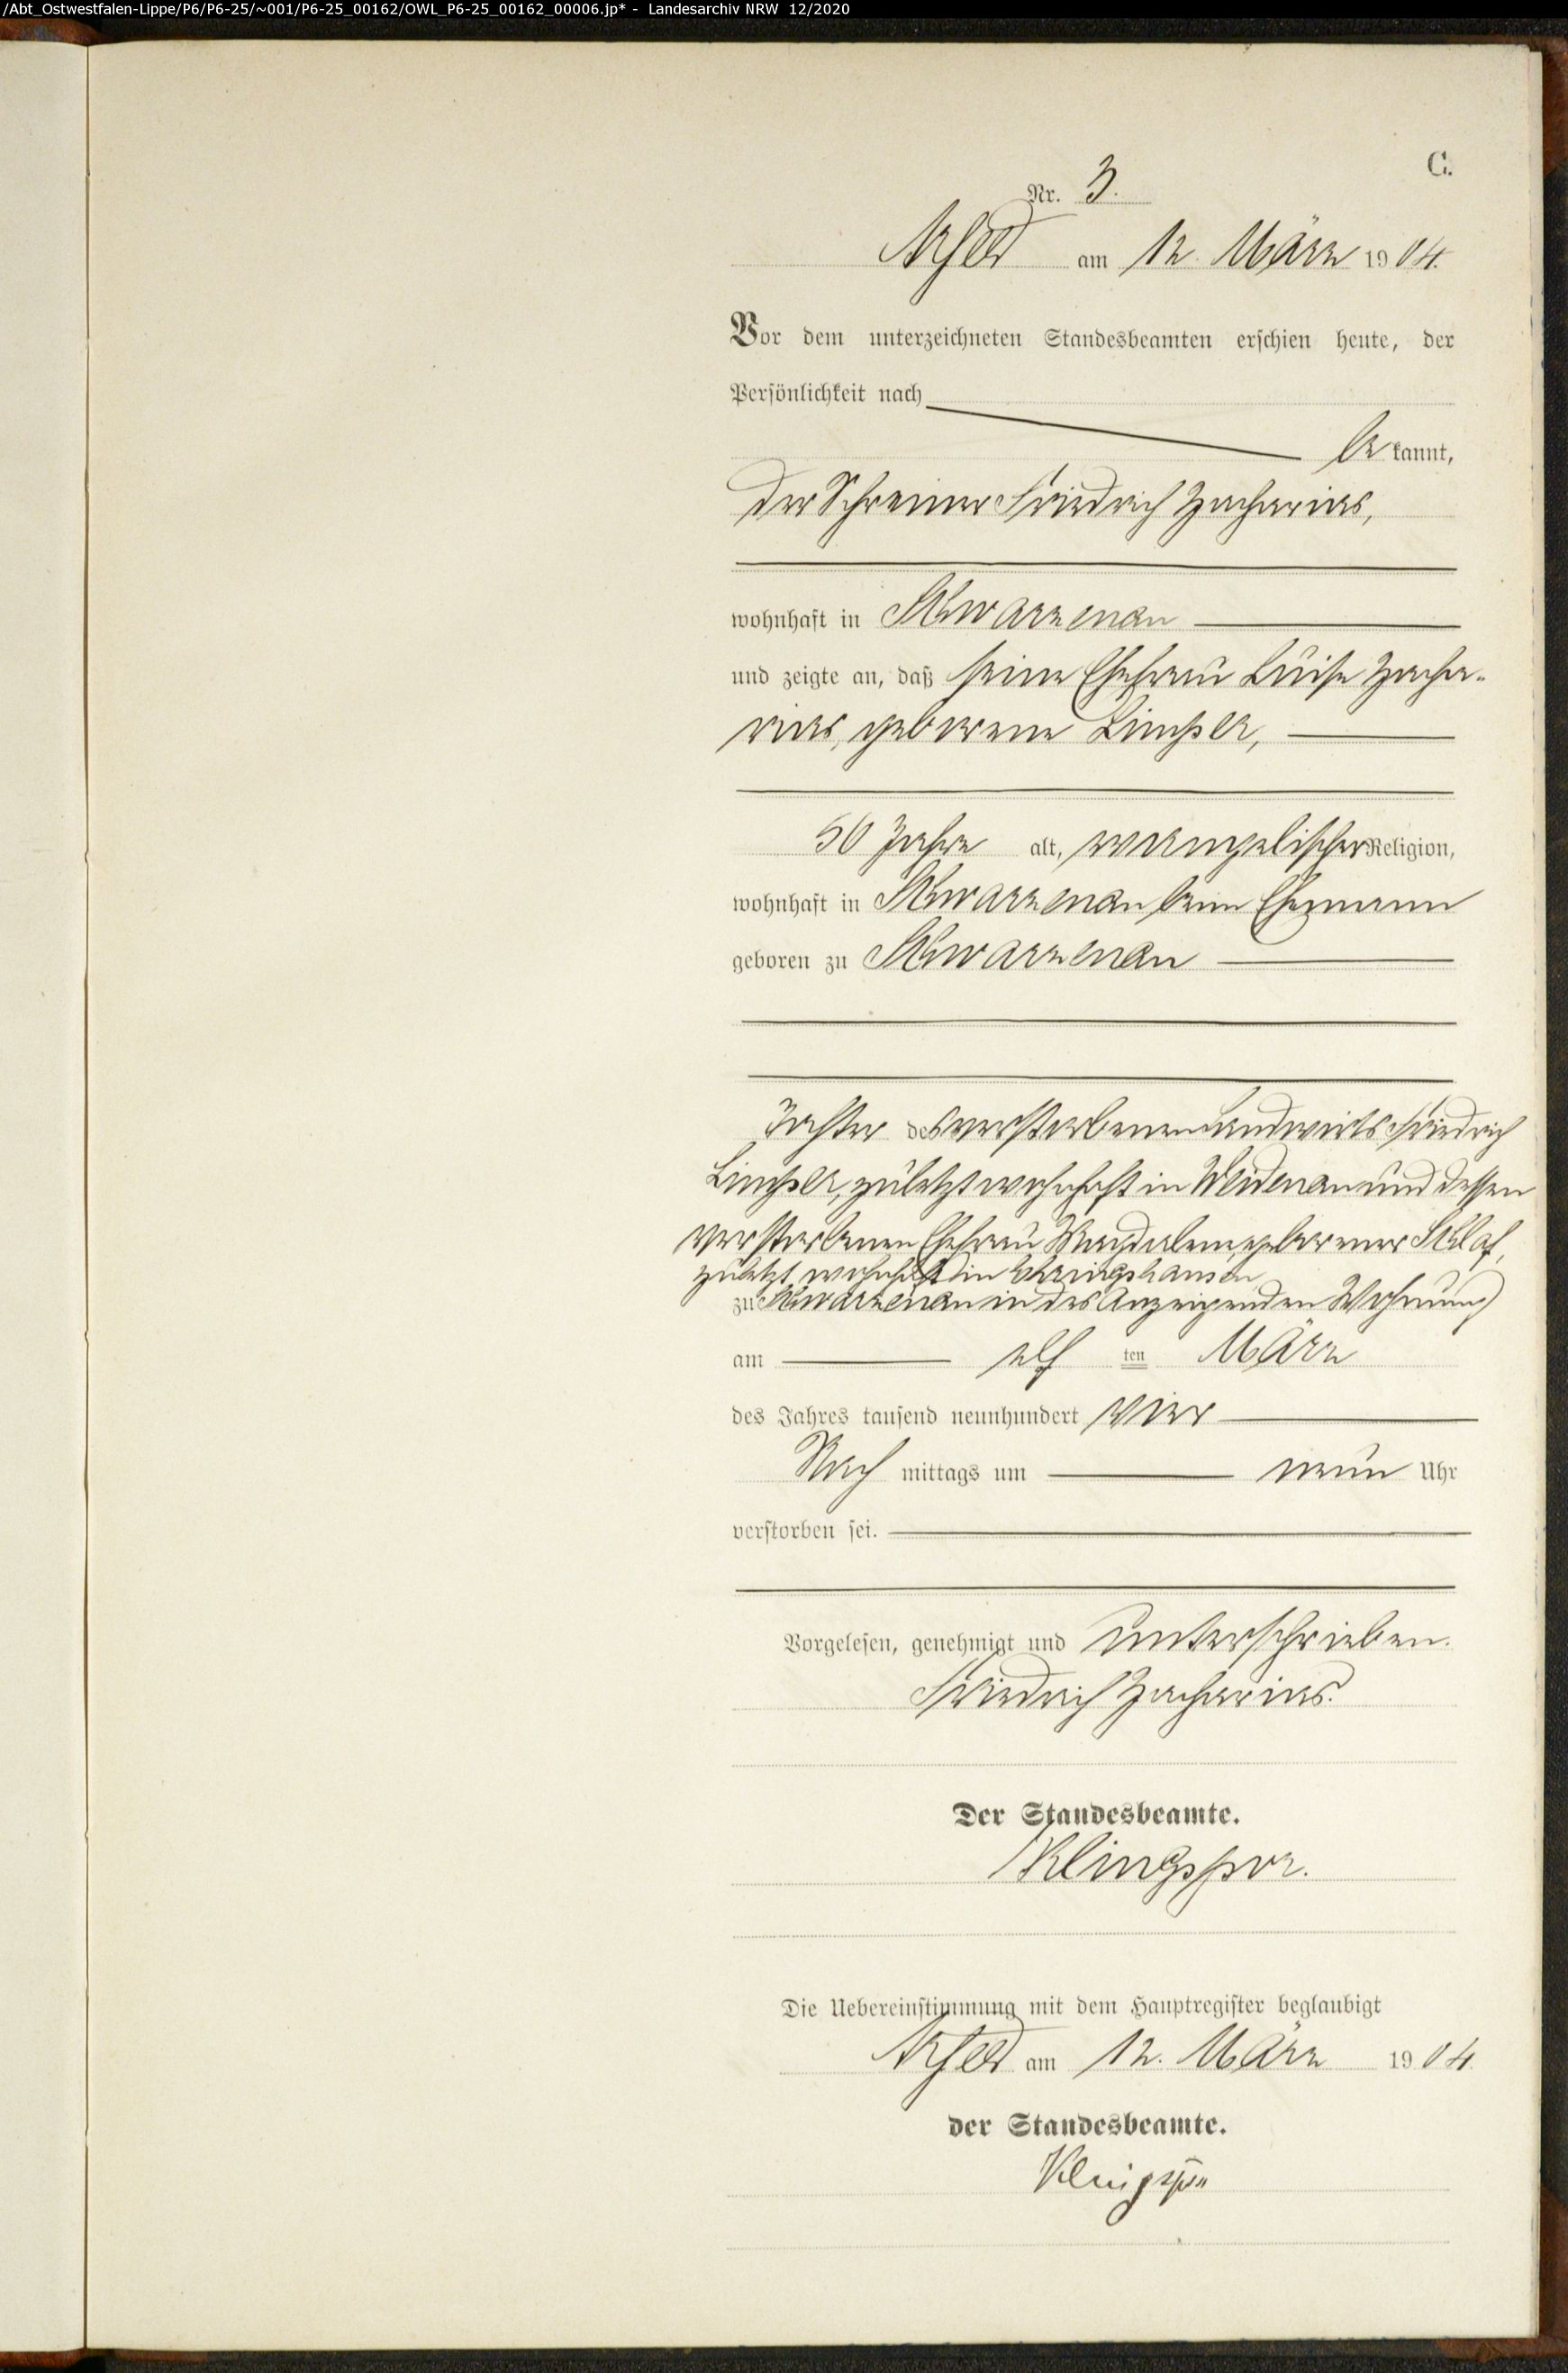 /Abt_Ostwestfalen-Lippe/P6/P6-25/~001/P6-25_00162/OWL_P6-25_00162_00006.jp* - Landesarchiv NRW 12/2020
C.
Nr. 3.
Arfeld am 12. März 1904.
Vor dem unterzeichneten Standesbeamten erschien heute, der
Persönlichkeit nach
bekannt,
der Schreiner Friedrich Zacharias,
wohnhaft in Schwarzenau
und zeigte an, daß seine Ehefrau Luise Zacha-
rias, geborene
50 Jahre alt, evangelischer Religion,
wohnhaft in Schwarzenau beim Ehemann
geboren zu Schwarzenau
Tochter des verstorbenen Landwirts Friedrich
zuletzt wohnhaft in Weidenau und dessen
verstorbenen Ehefrau Magdalene, geborener Schlaf,
zuletzt wohnhaft in
zu Schwarzenau in des Anzeigenden Wohnung
am elf ten März
des Jahres tausend neunhundert vier
Nach mittags um neun Uhr
verstorben sei.
Vorgelesen, genehmigt und unterschrieben.
Friedrich Zacharias.
Der Standesbeamte.
Klingspor.
Die Uebereinstimmung mit dem Hauptregister beglaubigt
Arfeld am 12. März 1904.
der Standesbeamte.
Klingspor